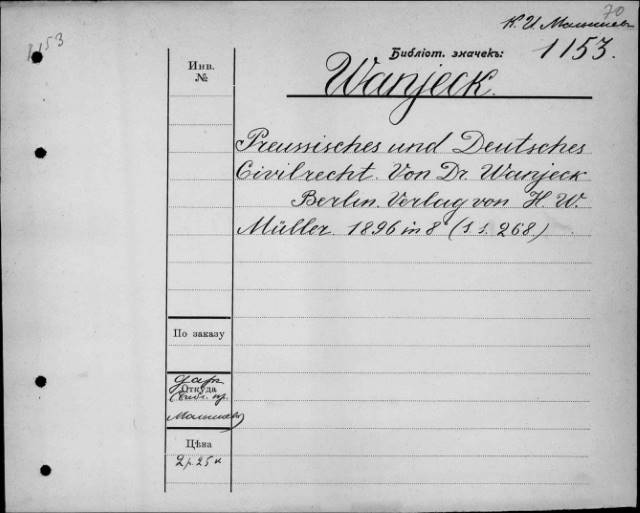 70
К. И. Малышевъ
1153
Библіот. значекъ:
1153.
Инв.
№
Wanjeck.
Preussisches und Deutsches
Civilrecht. Von Dr. Wanjeck
Berlin. Verlag von H. W.
Müller. 1896 in 8° (S s. 268.)
По заказу
даръ
Откуда
Малышева)
Цѣна
2 р. 25 к